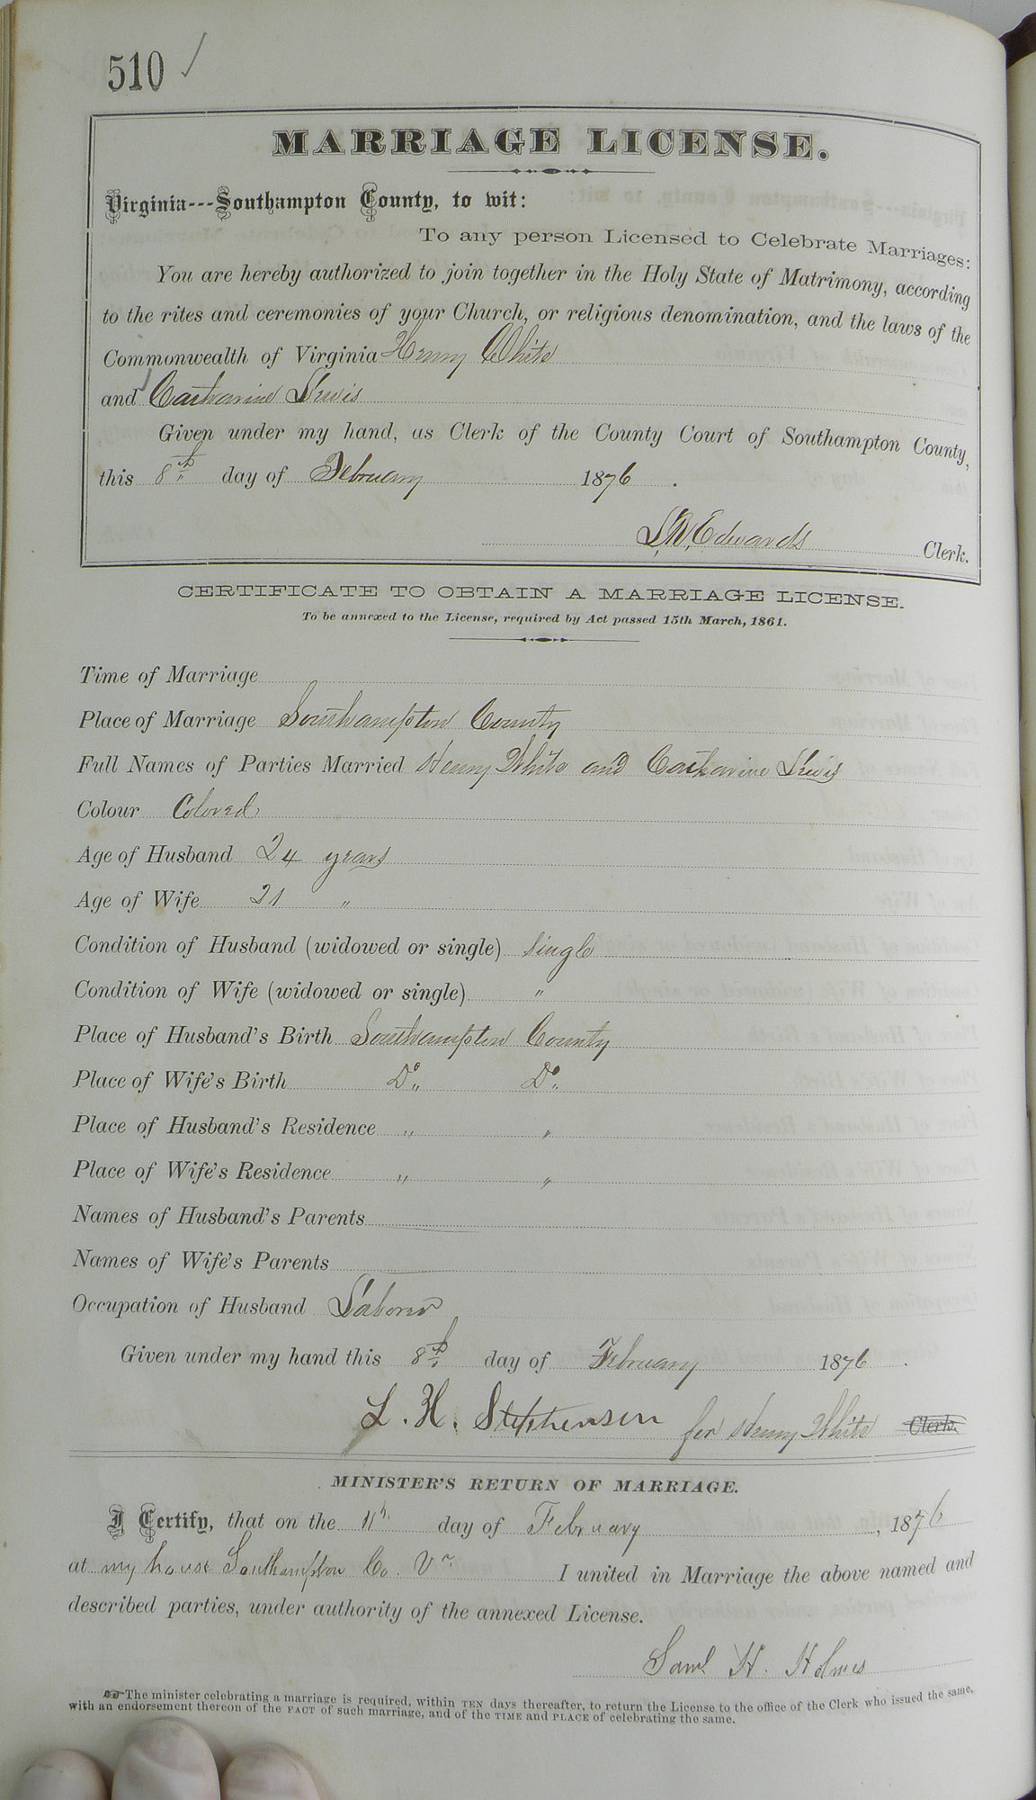 510 ✓
MARRIAGE LICENSE.
Virginia---Southampton County, to wit:
To any person Licensed to Celebrate Marriages:
You are hereby authorized to join together in the Holy State of Matrimony, according
to the rites and ceremonies of your Church, or religious denomination, and the laws of the
Commonwealth of Virginia Henry White
and Catharine Lewis
Given under my hand, as Clerk of the County Court of Southampton County,
this 8th day of February 1876.
L. R. Edwards Clerk.
CERTIFICATE TO OBTAIN A MARRIAGE LICENSE.
To be annexed to the License, required by Act passed 15th March, 1861.
Time of Marriage
Place of Marriage Southampton County
Full Names of Parties Married Henry White and Catharine Lewis
Colour Colored
Age of Husband 24 years
Age of Wife 21 "
Condition of Husband (widowed or single) Single
Condition of Wife (widowed or single) "
Place of Husband's Birth Southampton County
Place of Wife's Birth Do. Do.
Place of Husband's Residence " "
Place of Wife's Residence " "
Names of Husband's Parents
Names of Wife's Parents
Occupation of Husband Laborer
Given under my hand this 8th day of February 1876.
L. H. Stephenson for Henry White Clerk.
MINISTER'S RETURN OF MARRIAGE.
I Certify, that on the 11th. day of February, 1876
at my house Southampton Co. Va I united in Marriage the above named and
described parties, under authority of the annexed License.
Saml H. Holmes
The minister celebrating a marriage is required, within TEN days thereafter, to return the License to the office of the Clerk who issued the same,
with an endorsement thereon of the FACT of such marriage, and of the TIME and PLACE of celebrating the same.